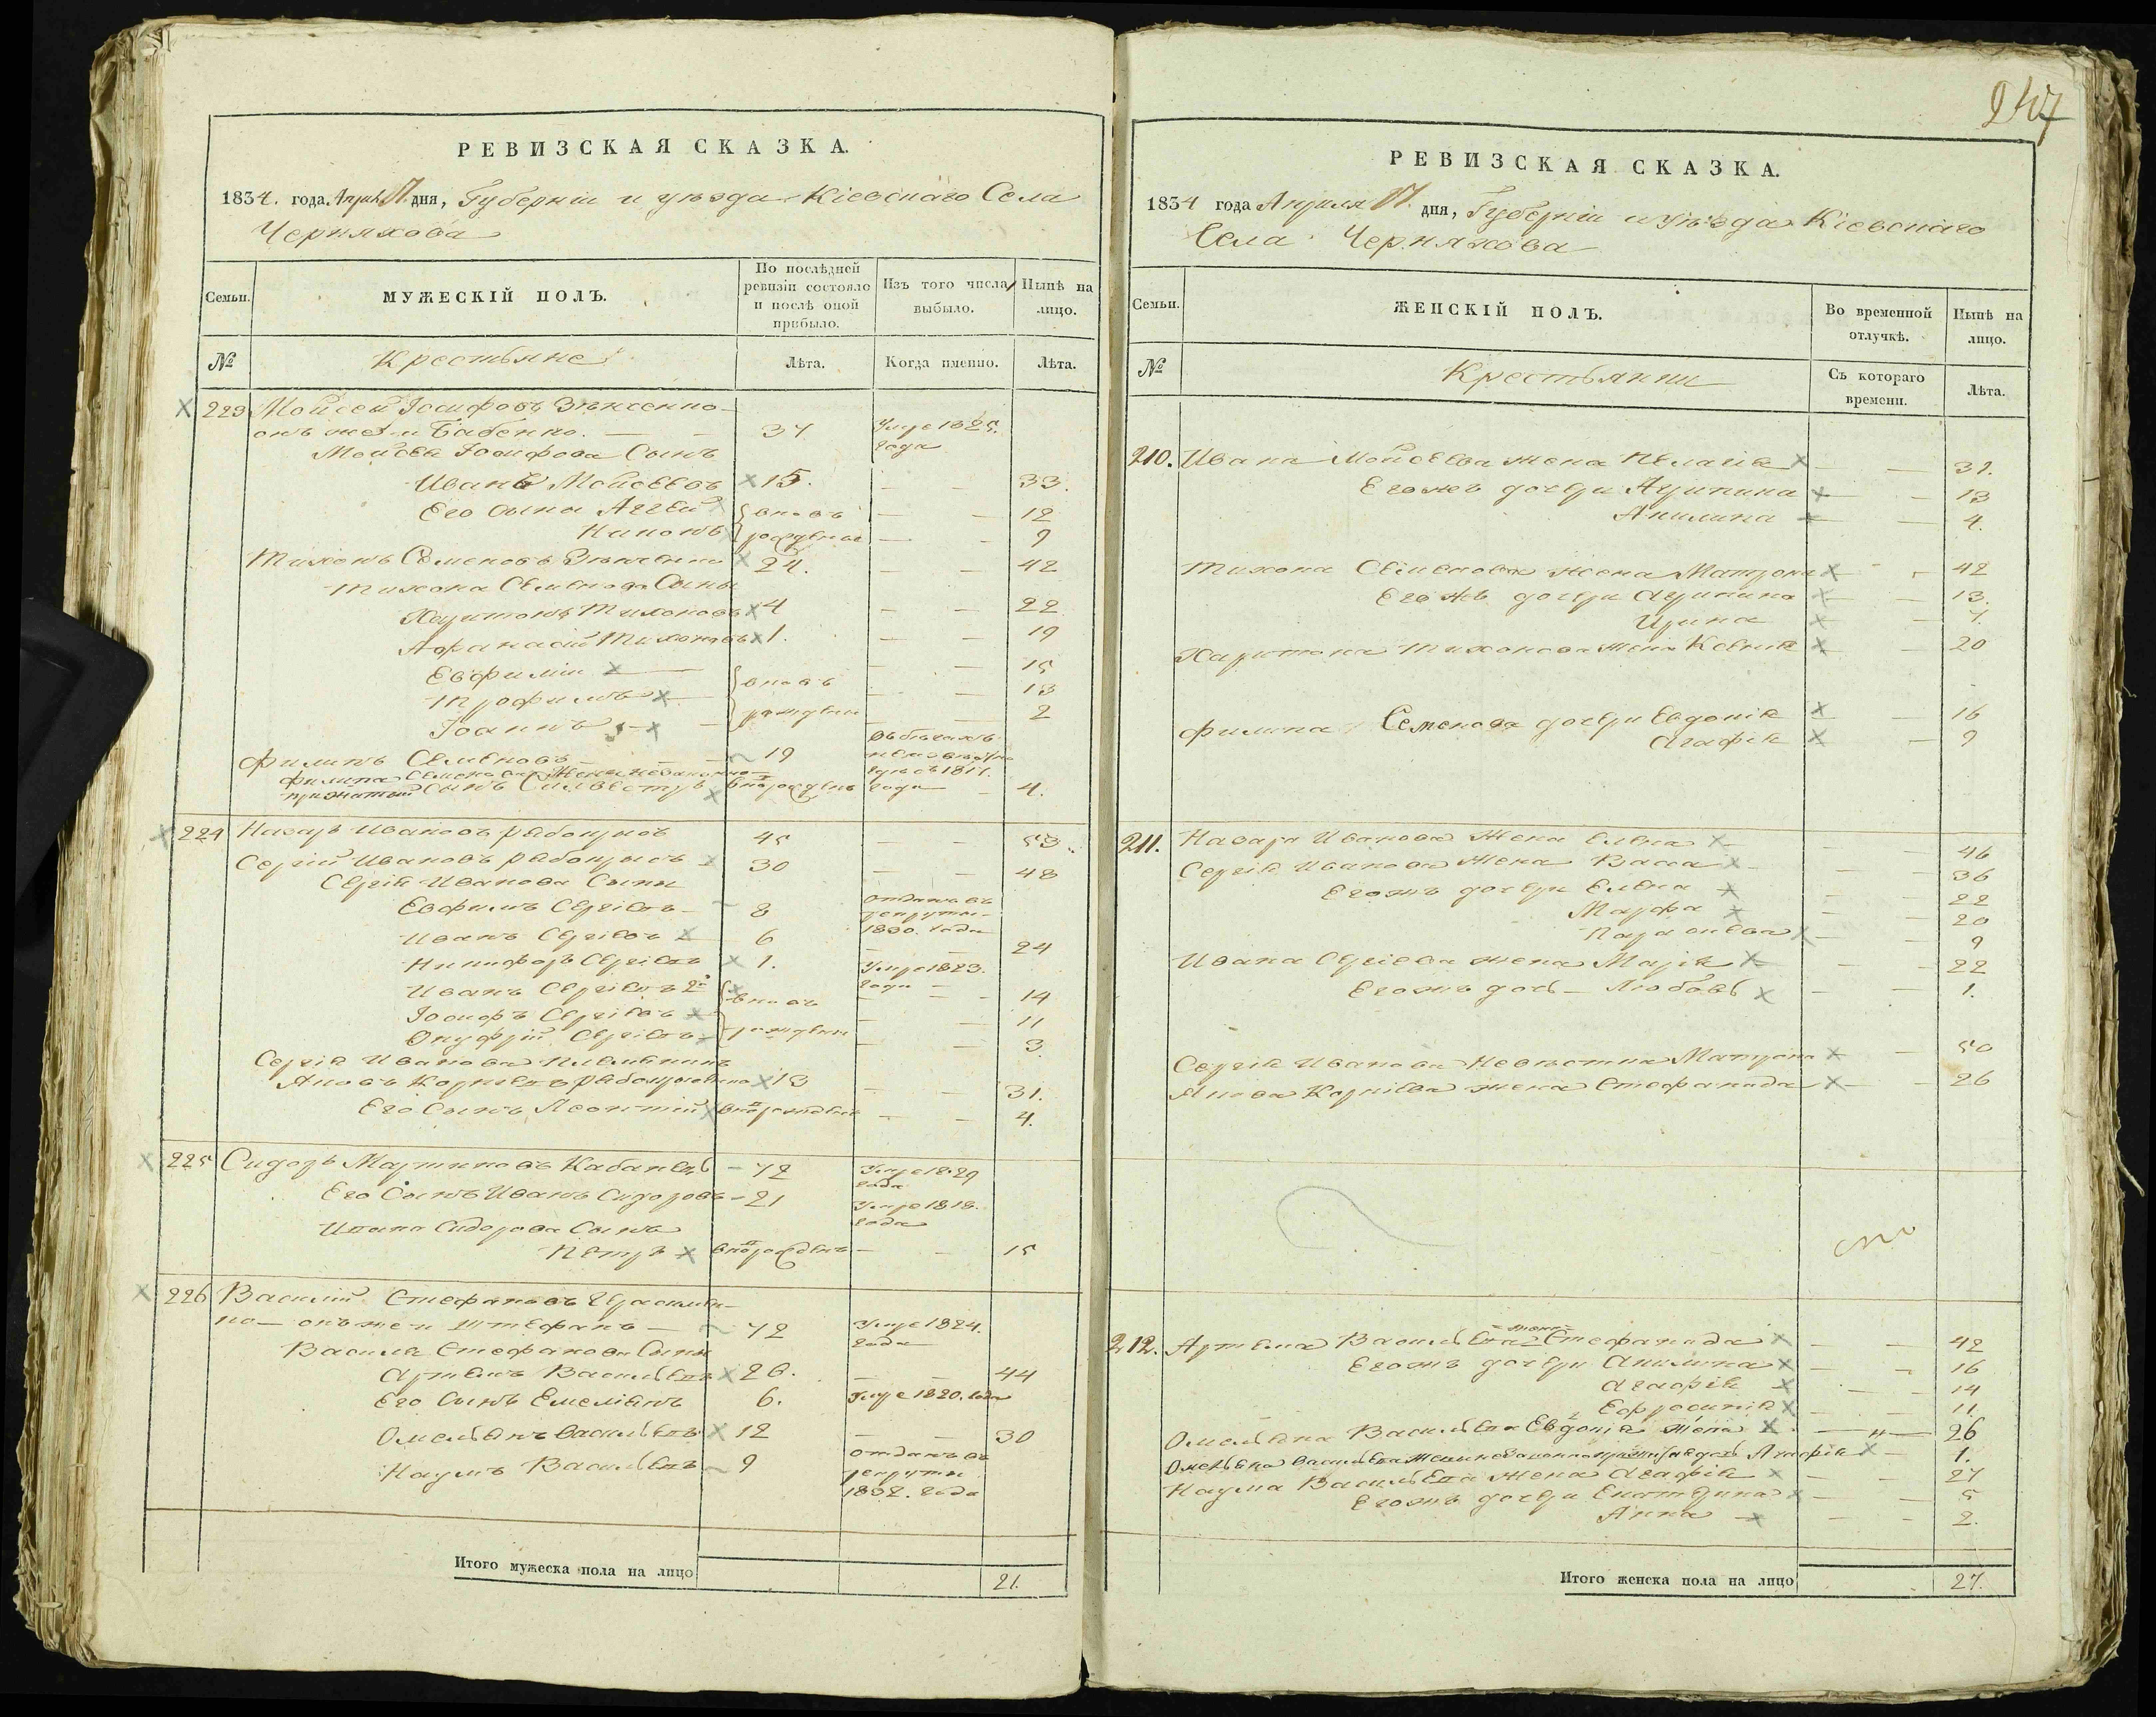 РЕВИЗСКАЯ СКАЗКА.
1834. года Апреля 17 дня, Губерніи и уѣзда Кіевскаго Села
Черняхова
Семьи.
МУЖЕСКІЙ ПОЛЪ.
По послѣдней ревизіи состояло и послѣ оной прибыло.
Изъ того числа выбыло.
Нынѣ на лицо.
№
Крестьяне
Лѣта.
Когда именно.
Лѣта.
223 Мойсей Іосифовъ
онъ же и Бабенко. — 37 Умре 1825. года
Мойсея Іосифова Сынъ
Иванъ Мойсеевъ 15. — — 33.
Его сыны Аггей вновь — — 12
рождены — - 9
Тихонъ Семеновъ 24. — — 42
Тихона Семенова Сыны
Харитонъ Тихоновъ 4 — — 22
Афанасій Тихоновъ 1. — — 19
Евфимій вновь — — 15
Трофимъ — — 13
Іоаннъ рождены — — 2
Филипъ Семеновъ — 19 въ бѣгахъ
съ 1817. года
Филипа Семенова Жены незаконно
прижитый Сынъ Сильвестръ вно рожденъ - 4.
224 Назаръ Ивановъ 45 — — 53.
Сергій Ивановъ 30 — — 48
Сергія Иванова Сыны
Евфимъ Сергіевъ 8 отданъ въ рекруты 1830. года
Иванъ Сергіевъ 6 — — 24
Никифоръ Сергіевъ 1. Умре 1823. года
Иванъ Сергіевъ 2й вновь — — 14
Іосифъ Сергіевъ — — 11
Онуфрій Сергіевъ рождены — — 3.
Сергія Иванова племянникъ
Яковъ Корніевъ 13 — — 31.
Его Сынъ Леонтій вно рожденъ — — 4.
225 Сидоръ Мартиновъ Кабанецъ — 72 Умре 1829 года
Его Сынъ Иванъ Сидоровъ — 21 Умре 1818. года
Ивана Сидорова Сынъ
Петръ вно рожденъ — - 15
226 Василій Стефановъ
онъ же и Штефанъ — 72 Умре 1824. года
Василя Стефанова Сыны
Артемъ Васильевъ 26. — — 44
Его Сынъ Емеліянъ 6. Умре 1820. года
Омельянъ Васильевъ 12 — — 30
Наумъ Васильевъ 9 отданъ въ рекруты 1832. года
Итого мужеска пола на лицо 21.
247
РЕВИЗСКАЯ СКАЗКА.
1834 года Апреля 17. дня, Губерніи и уѣзда Кіевскаго
Села Черняхова
Семьи.
ЖЕНСКІЙ ПОЛЪ.
Во временной отлучкѣ.
Нынѣ на лицо.
№
Крестьянки
Съ котораго времени.
Лѣта.
210. Ивана Мойсеева жена Пелагія — —
Его жъ дочери Акулина — 13
Акилина — 4.
Тихона Семенова жена Матрона - - 42
Его жъ дочери — 13.
Ирина — 7.
Харитона Тихонова жена Ксенія — 20
Филипа Семенова дочери Евдокія — 16
Агафія — 9
211. Назара Иванова Жена Елена — — 46
Сергія Иванова Жена Васса — — 36
Его жъ дочери Елена — — 22
Марфа — — 20
Параскева — — 9
Ивана Сергіева жена Марія — — 22
Его жъ дочь — Любовь — — 1.
Сергія Иванова Невѣстка Матрона — 50
Якова Корніева жена Стефанида — — 26
212. Артема Васильева жена Стефанида — — 42
Его жъ дочери Акилина — — 16
Агафія — — 14
Ефросинія — — 11.
Омельяна Васильева Евдокія жена — — 26
Омельяна Васильева Жены незаконно прижитая дочь Агафія — 1.
Наума Васильева жена Агафія — — 27
Его жъ дочери Екатерина — — 5
Анна — - 2.
Итого женска пола на лицо 27.